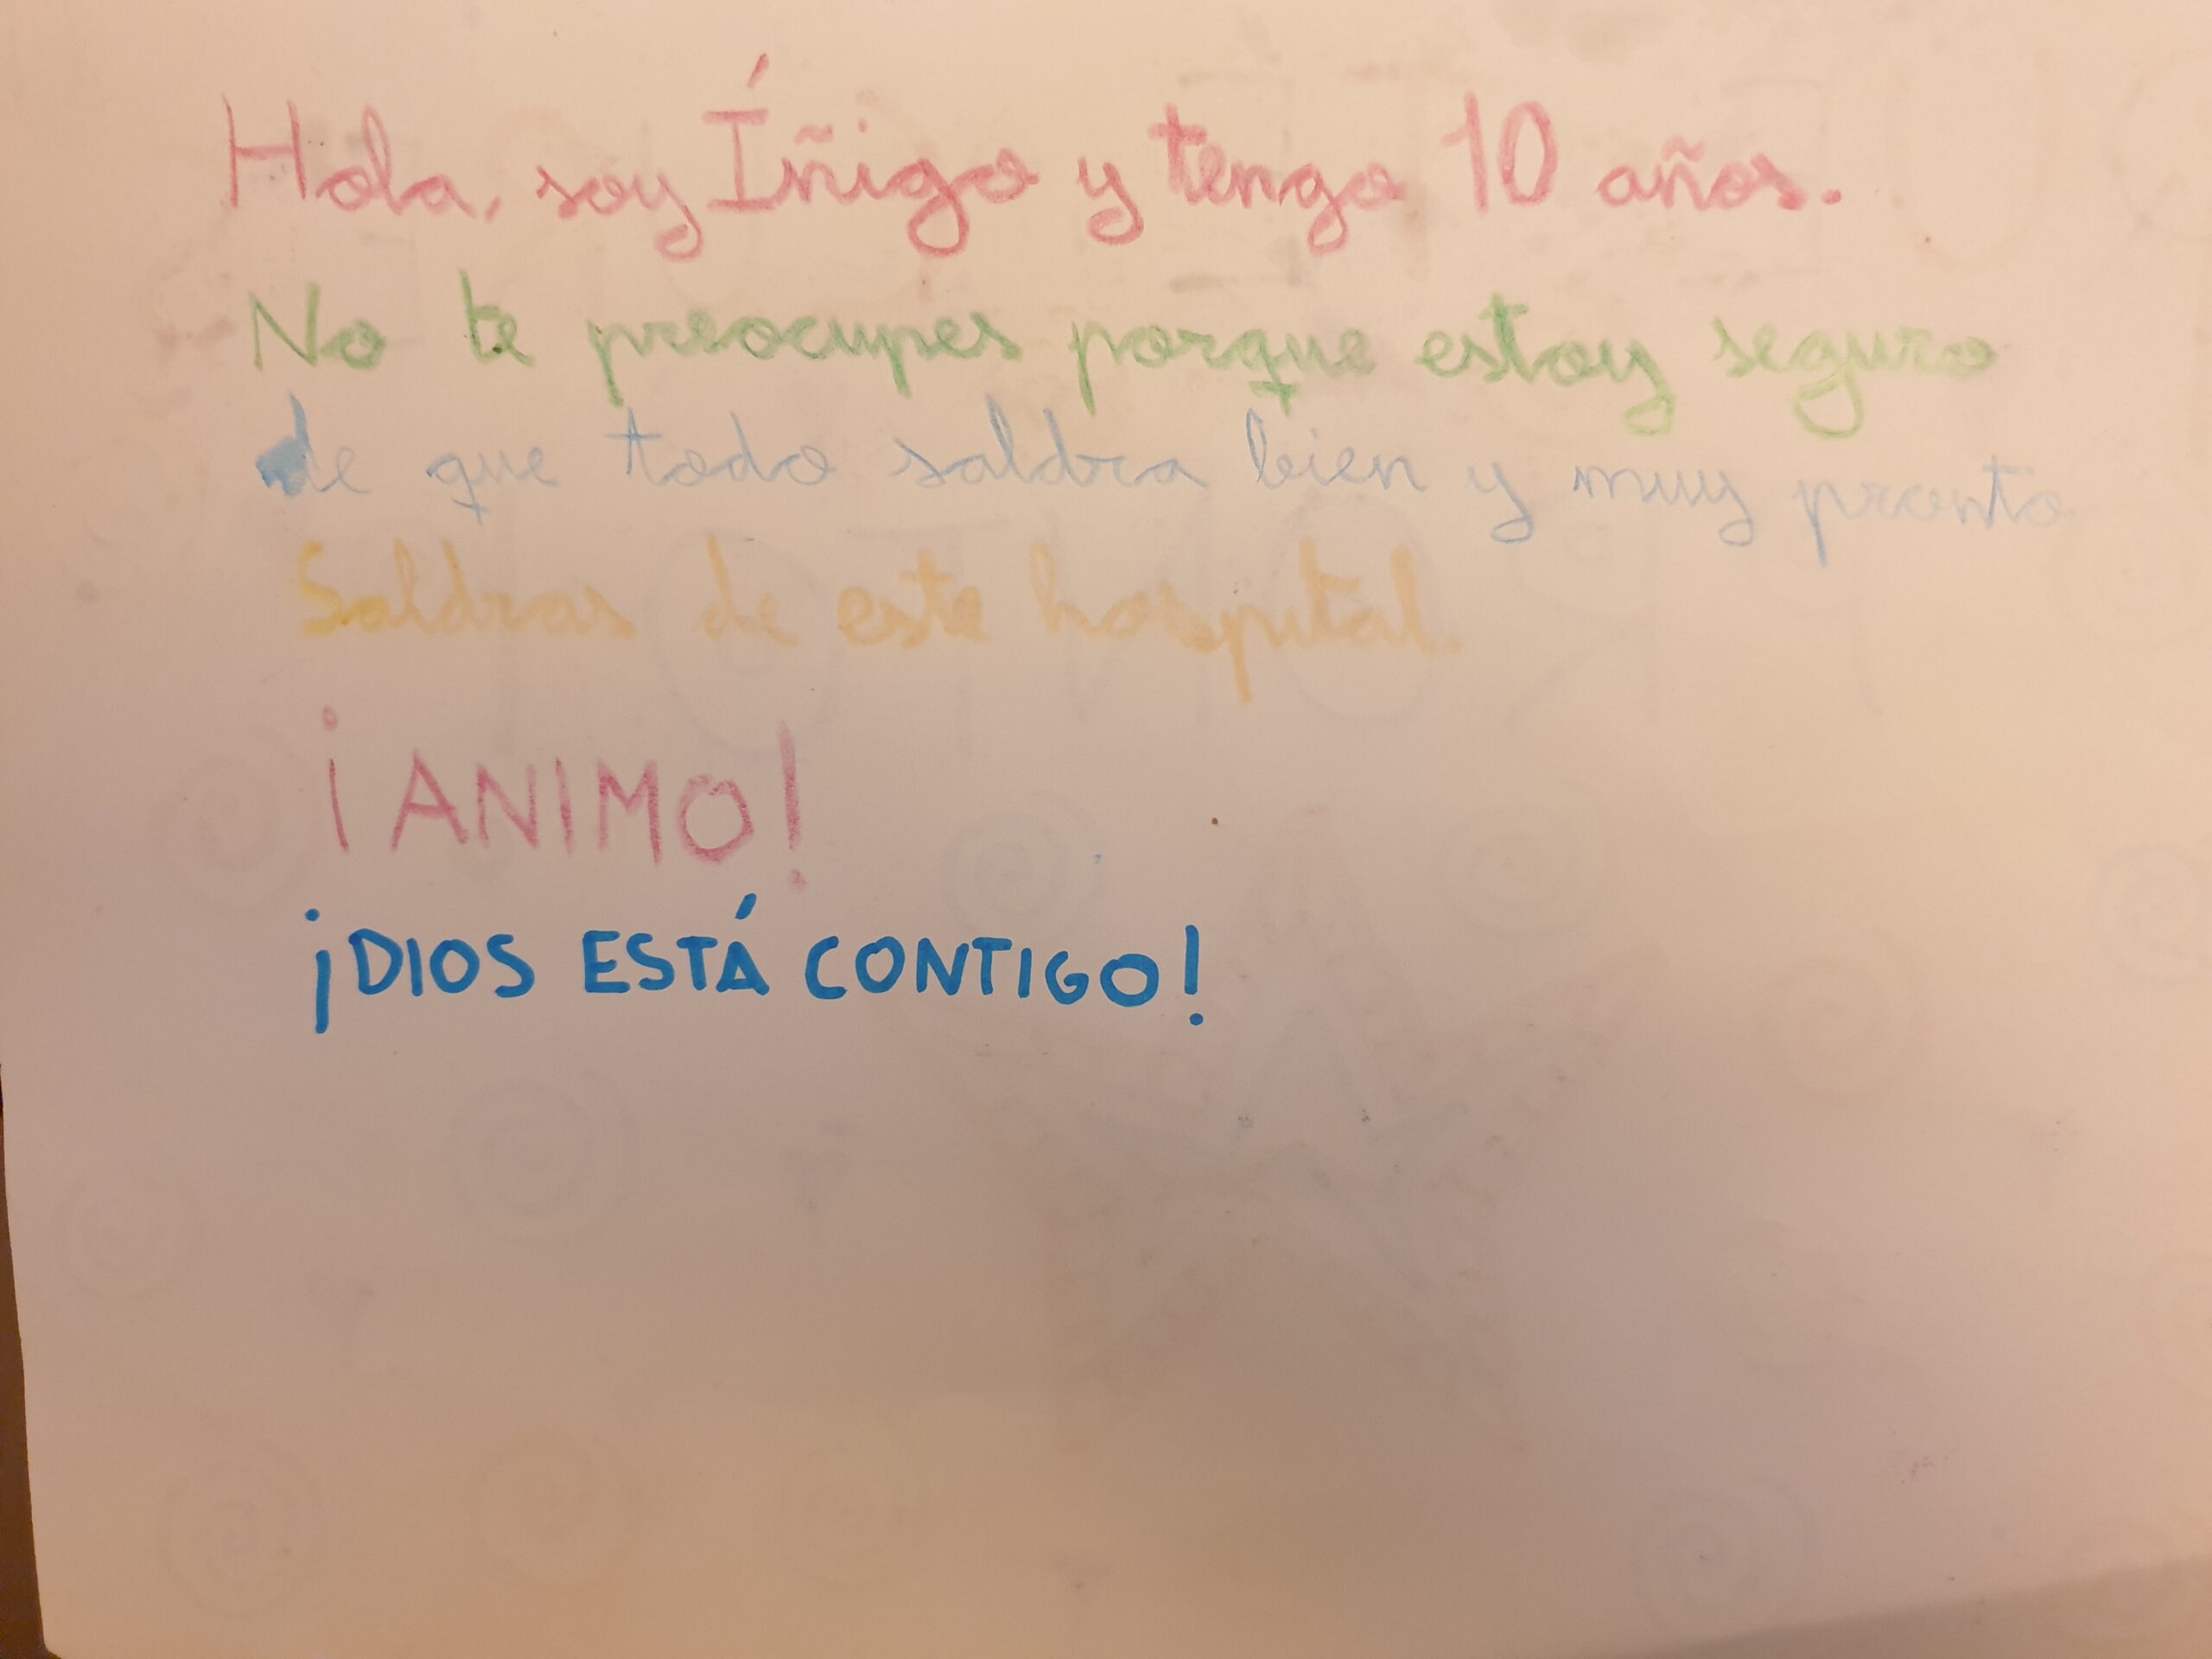 Hola, soy Íñigo y tengo 10 años.
No te preocupes porque estoy seguro
de que todo saldra bien y muy pronto
Saldras de este hospital.
¡ANIMO!
¡DIOS ESTÁ CONTIGO!